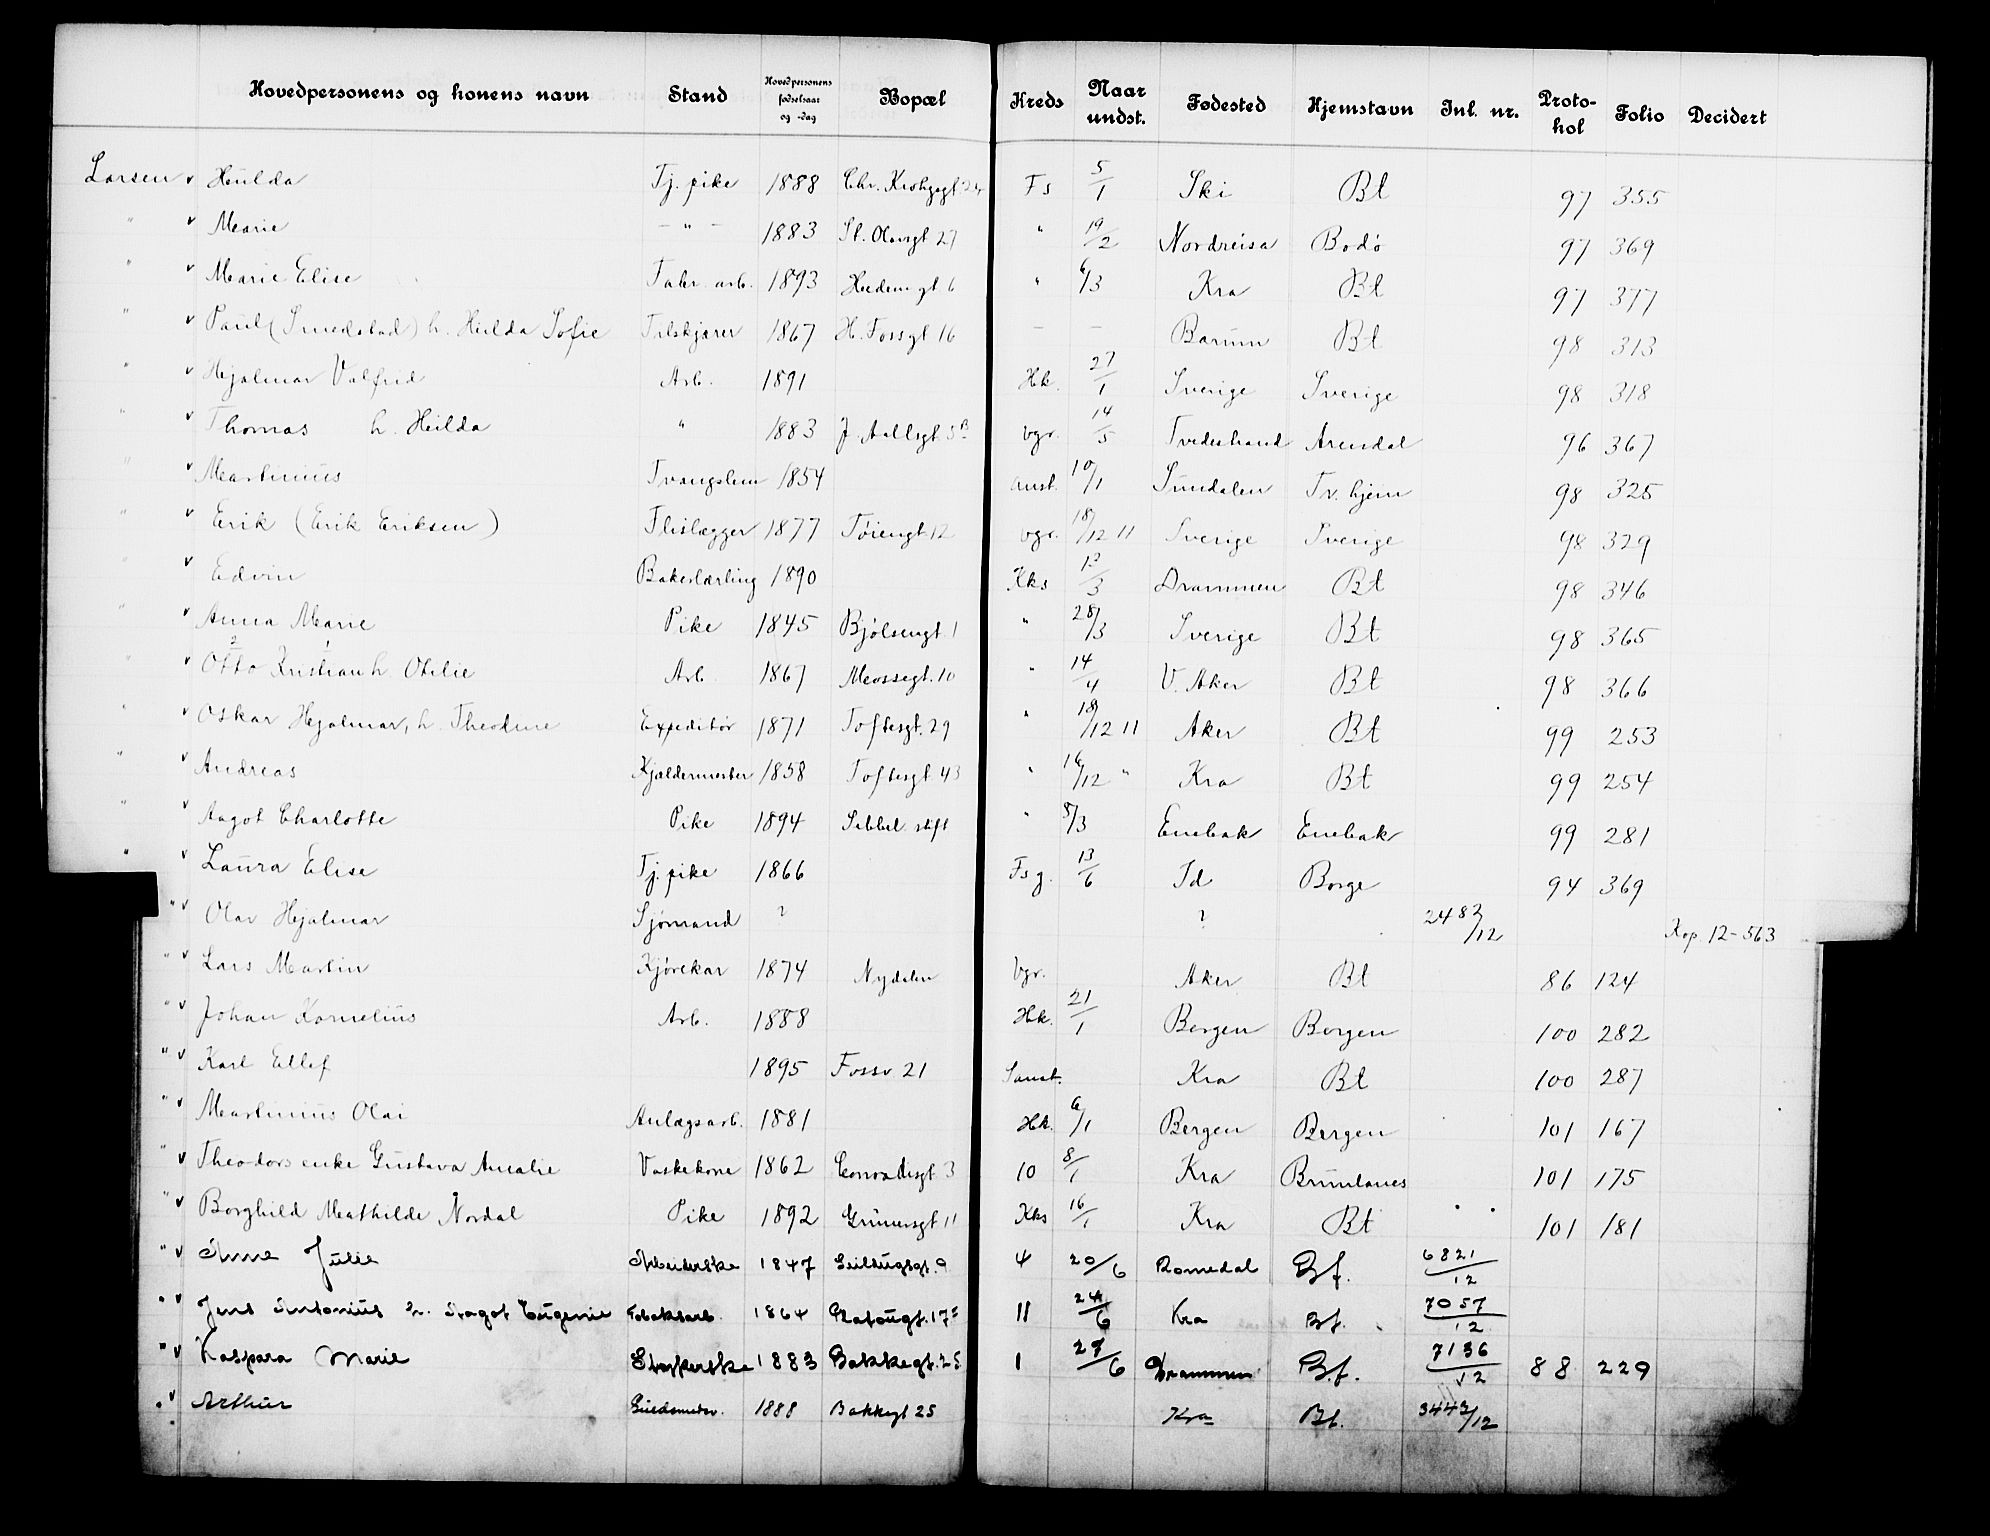 Hovedpersonens og konens navn Stand Hovedpersonens fødselsaar og -dag Bopæl Kreds Naar undst. Fødested Hjemstavn Inl. nr. Protokol Folio Decidert
Larsen v Hulda Tj. pike 1888 Chr. Krohgsgt Fs 5/1 Ski Bt 97 355
" v Marie - " - 1883 St. Olavsgt 27 " 19/2 Nordreisa Bodø 97 369
" v Marie Elise Fabr. arb. 1893 6 " 6/3 Kra Bt 97 377
" v Paul (Smedstad) h. Hulda Sofie 1867 H. Fossgt 16 - - Bærum Bt 98 313
" v Hjalmar Valfrid Arb. 1891 Hk. 27/1 Sverige Sverige 98 318
" v Thomas h. Hilda " 1883 J. Aallsgt 5B Vgr. 14/5 Tvedestrand Arendal 96 367
" v Martinius Tvangslem 1854 Anst. 10/1 Sundalen Tv. hjem 98 325
" v Erik (Erik Eriksen) Flislægger 1877 Tøiengt 12 Vgr. 18/12 11 Sverige Sverige 98 329
" v Edvin Bakerlærling 1890 Kks 12/3 Drammen Bt 98 346
" v Anna Marie Pike 1845 Bjølsengt 1 " 28/3 Sverige Bt 98 365
" v Otto Kristian h Otilie Arb. 1867 Mossegt. 10 " 14/4 V. Aker Bt 98 366
" v Oskar Hjalmar, h. Theodine Expeditør 1871 Toftesgt. 29 " 18/12 11 Aker Bt 99 253
" v Andreas Kjældermester 1858 Toftesgt 43 " 16/12 " Kra Bt 99 254
" v Aagot Charlotte Pike 1894 stift " 8/3 Enebak Enebak 99 281
" v Laura Elise Tj. pike 1866 Fsg. 13/6 Id Borge 94 369
" v Olav Hjalmar Sjømand ? ? 2482/12 Kop. 12-563
" v Lars Martin Kjørekar 1874 Nydalen Vgr. Aker Bt 86 124
" v Johan Kornelius Arb. 1888 Hk. 21/1 Bergen Bergen 100 282
" v Karl Ellef 1895 Fossv 21 Kra Bt 100 287
" v Martinius Olai Anlægsarb. 1881 Hk. 6/1 Bergen Bergen 101 167
" v Theodors enke Gustava Amalie Vaskekone 1862 Conradisgt 3 10 8/1 Kra Brunlanes 101 175
" v Borghild Mathilde Nordal Pike 1892 Grünersgt 11 Kks 16/1 Kra Bt 101 181
" v Anne Julie Arbeiderske 1847 9 4 20/6 Romedal Bf. 6821/12
" v Jens Antonius h. Aagot Eugenie 1864 11 24/6 Kra Bf. 7057/12
" v Kaspara Marie 1883 Bakkegt. 25 1 29/6 Drammen Bf. 7136/12 88 229
" v Arthur 1888 Bakkegt 25 Kra Bf. 3443/12